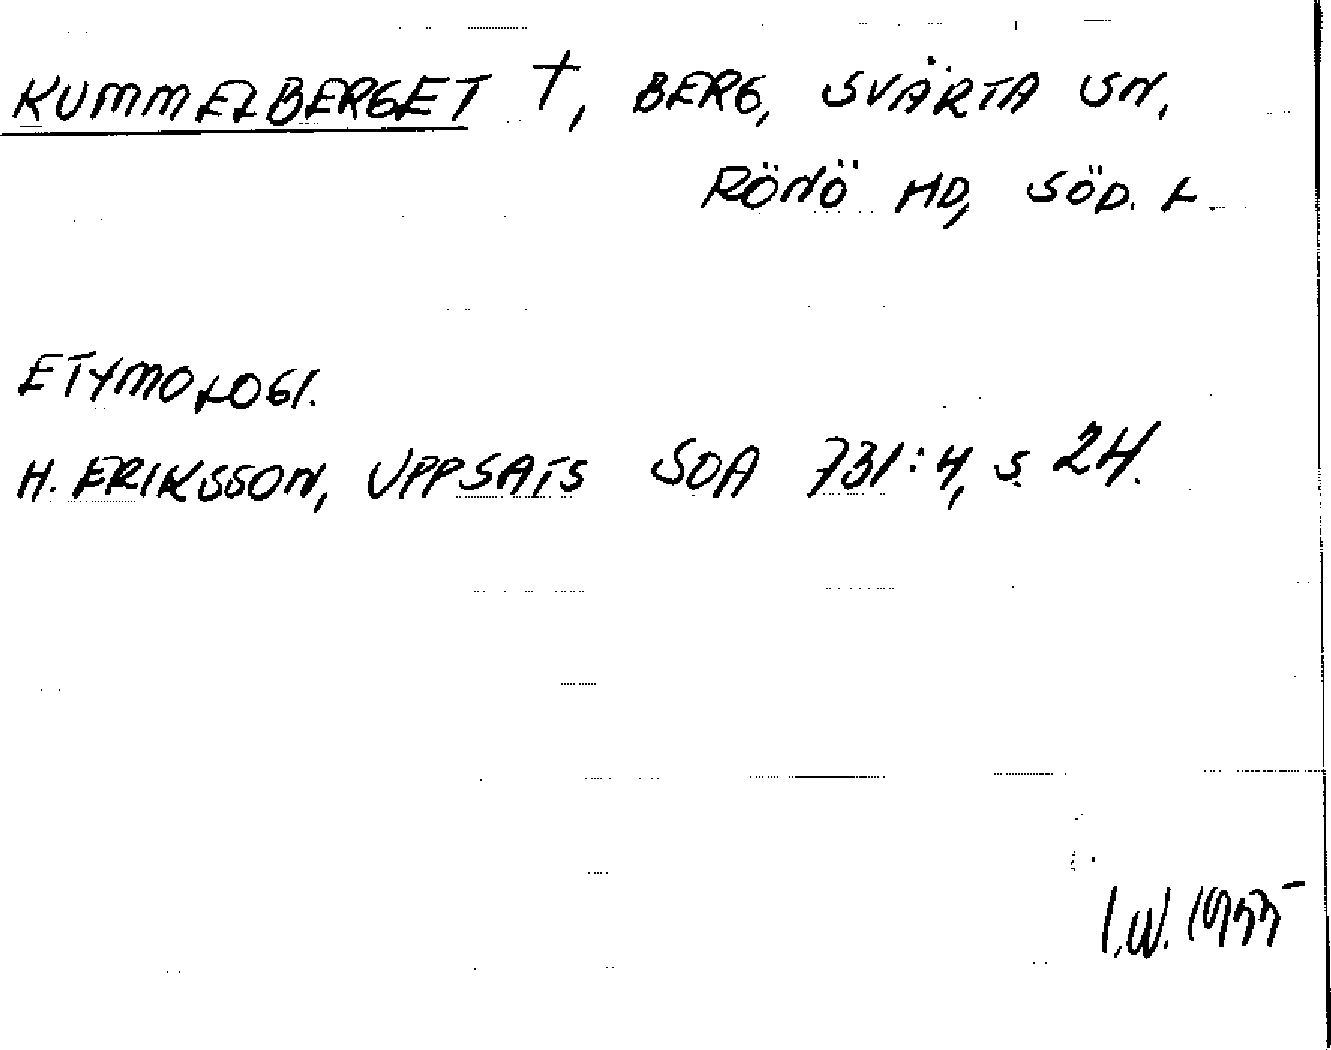 KUMMELBERGET †, BERG, SVÄRTA SN,
RÖNÖ HD, SÖD. L.
ETYMOLOGI.
H. ERIKSSON, UPPSATS SOA 731:4, S. 24.
I.W.